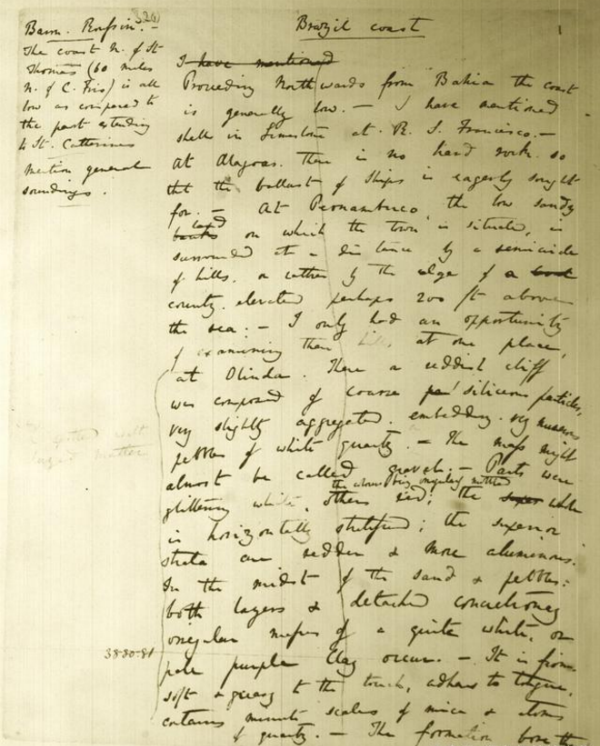 Brazil coast
Baron. Roussin. —
The coast N. of St
Thomas (60 miles
N. of C. Frio) is all
low as compared to
the part extending
to St. Catherines
mention general
soundings.
I have mentioned
Proceeding Northwards from Bahia the coast
is generally low. — I have mentioned
shell in Limestone at R. S. Francisco. —
At Alagoas. there is no hard rock. so
that the ballast of ships is eagerly sought
for. — At Pernambuco, the low sandy
land
banks on which the town is situated, is
surrounded at a distance by a semicircle
of hills. or rather by the edge of a
country. elevated perhaps 200 ft above
the sea: — I only had an opportunity
of examining them at one place,
at Olinda. Here a reddish cliff
was composed of coarse siliceous particles,
very slightly aggregated. embedding numerous
pebbles of white quartz. — The mass might
almost be called gravel: — Parts were
the whole being irregularly mottled
glittering white, others red; the while
is horizontally stratified; the superior
strata are redder & more aluminous.
In the midst of the sand & pebbles:
both layers & detached concretionary
irregular masses of a quite white, or
38-30-81
pale purple Clay occur. — It is fine
soft & greasy to the touch, adheres to tongue,
contains minute scales of mica & atoms
of quartz. — The formation